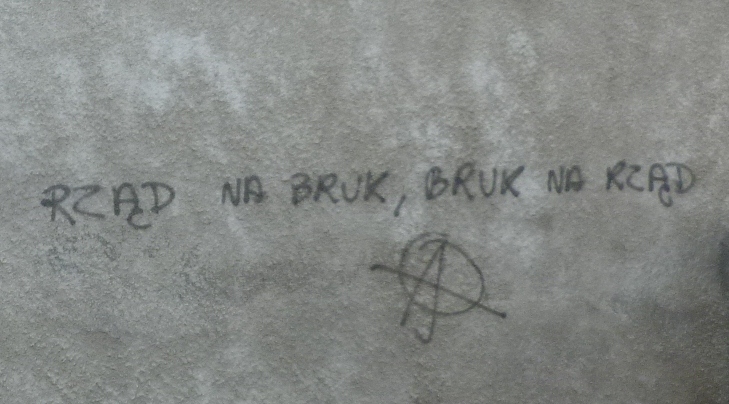 RZĄD NA BRUK, BRUK NA RZĄD